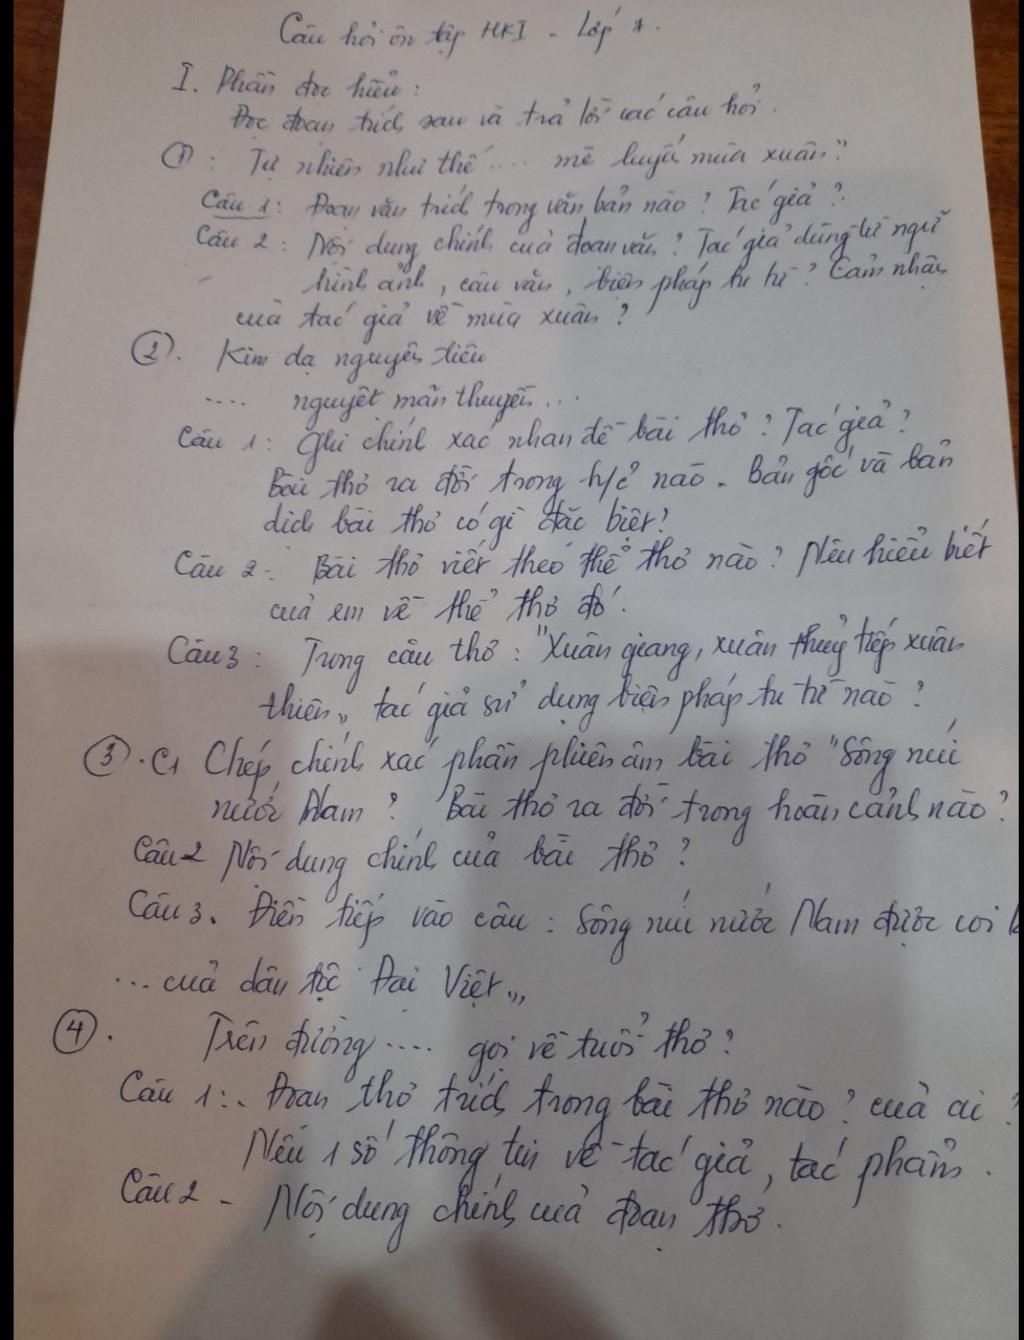 Câu hỏi ôn tập HKI - Lớp 7.
I. Phần đọc hiểu:
Đọc đoạn trích sau và trả lời các câu hỏi.
①: Tự nhiên như thế .... mê luyến mùa xuân"
Câu 1: Đoạn văn trích trong văn bản nào? Tác giả?
Câu 2: Nội dung chính của đoạn văn? Tác giả dùng từ ngữ
hình ảnh, câu văn, biện pháp tu từ? Cảm nhận
của tác giả về mùa xuân?
②. Kim dạ nguyên tiêu
.... nguyệt mãn thuyền...
Câu 1: Ghi chính xác nhan đề bài thơ? Tác giả?
Bài thơ ra đời trong h/c nào. Bản gốc và bản
dịch bài thơ có gì đặc biệt?
Câu 2: Bài thơ viết theo thể thơ nào? Nêu hiểu biết
của em về thể thơ đó.
Câu 3: Trong câu thơ: "Xuân giang, xuân thuỷ tiếp xuân
thiên" tác giả sử dụng biện pháp tu từ nào?
③. C1 Chép chính xác phần phiên âm bài thơ "Sông núi
nước Nam? Bài thơ ra đời trong hoàn cảnh nào?
Câu 2 Nội dung chính của bài thơ?
Câu 3. Điền tiếp vào câu: Sông núi nước Nam được coi
... của dân tộc Đại Việt"
④. Trên đường .... gọi về tuổi thơ?
Câu 1: Đoạn thơ trích trong bài thơ nào? của ai?
Nêu 1 số thông tin về tác giả, tác phẩm.
Câu 2 - Nội dung chính của đoạn thơ.